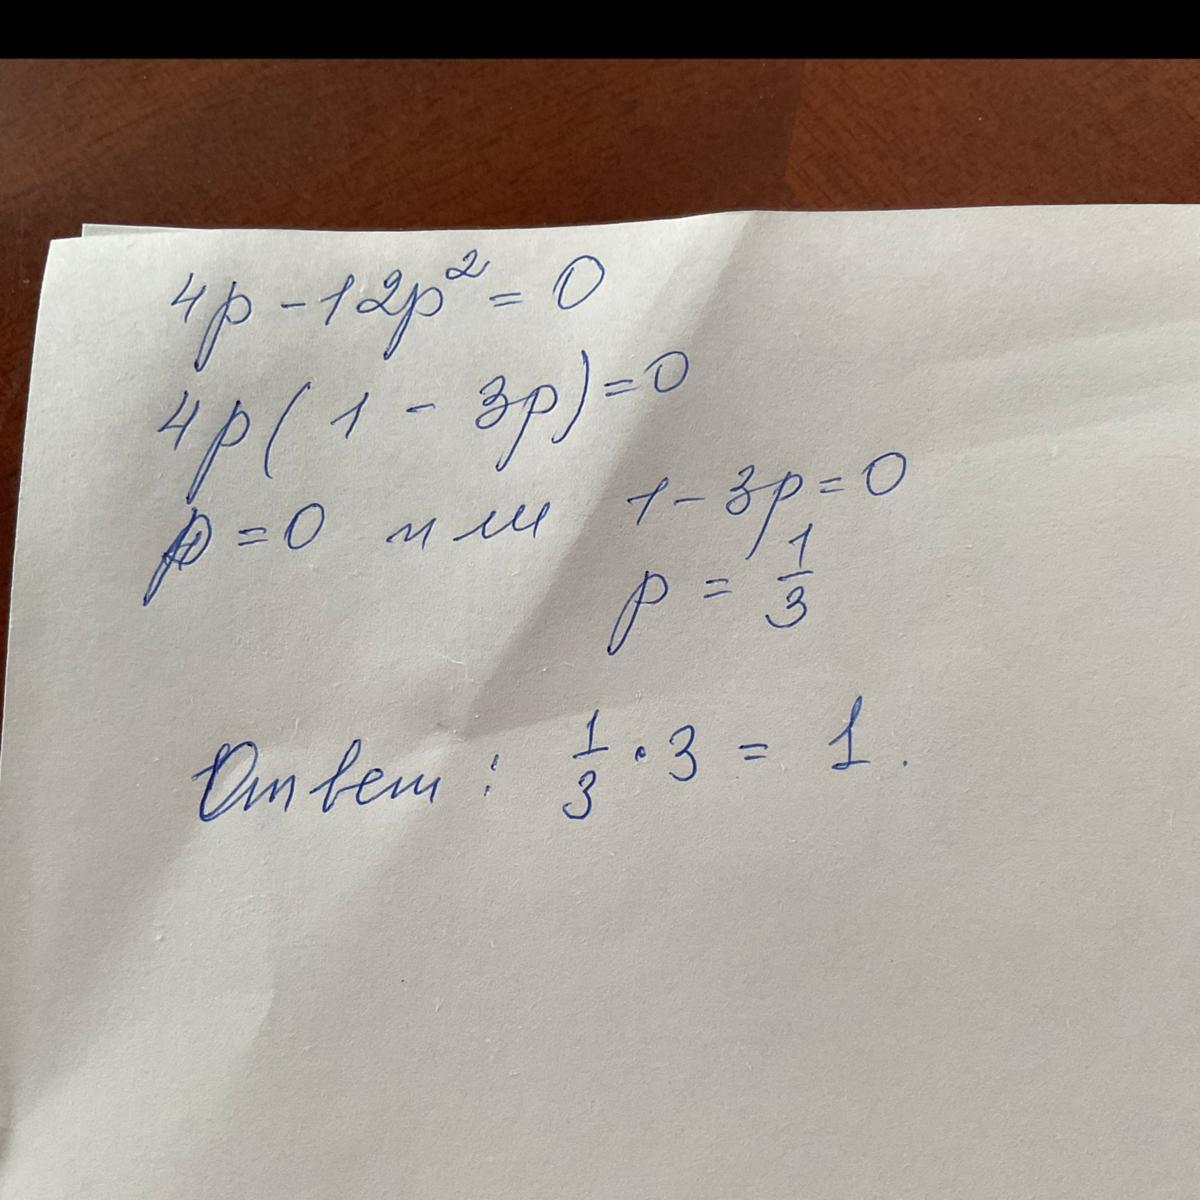 4p - 12p² = 0
4p(1 - 3p) = 0
p = 0 или 1 - 3p = 0
p = 1/3
Ответ: 1/3 · 3 = 1.